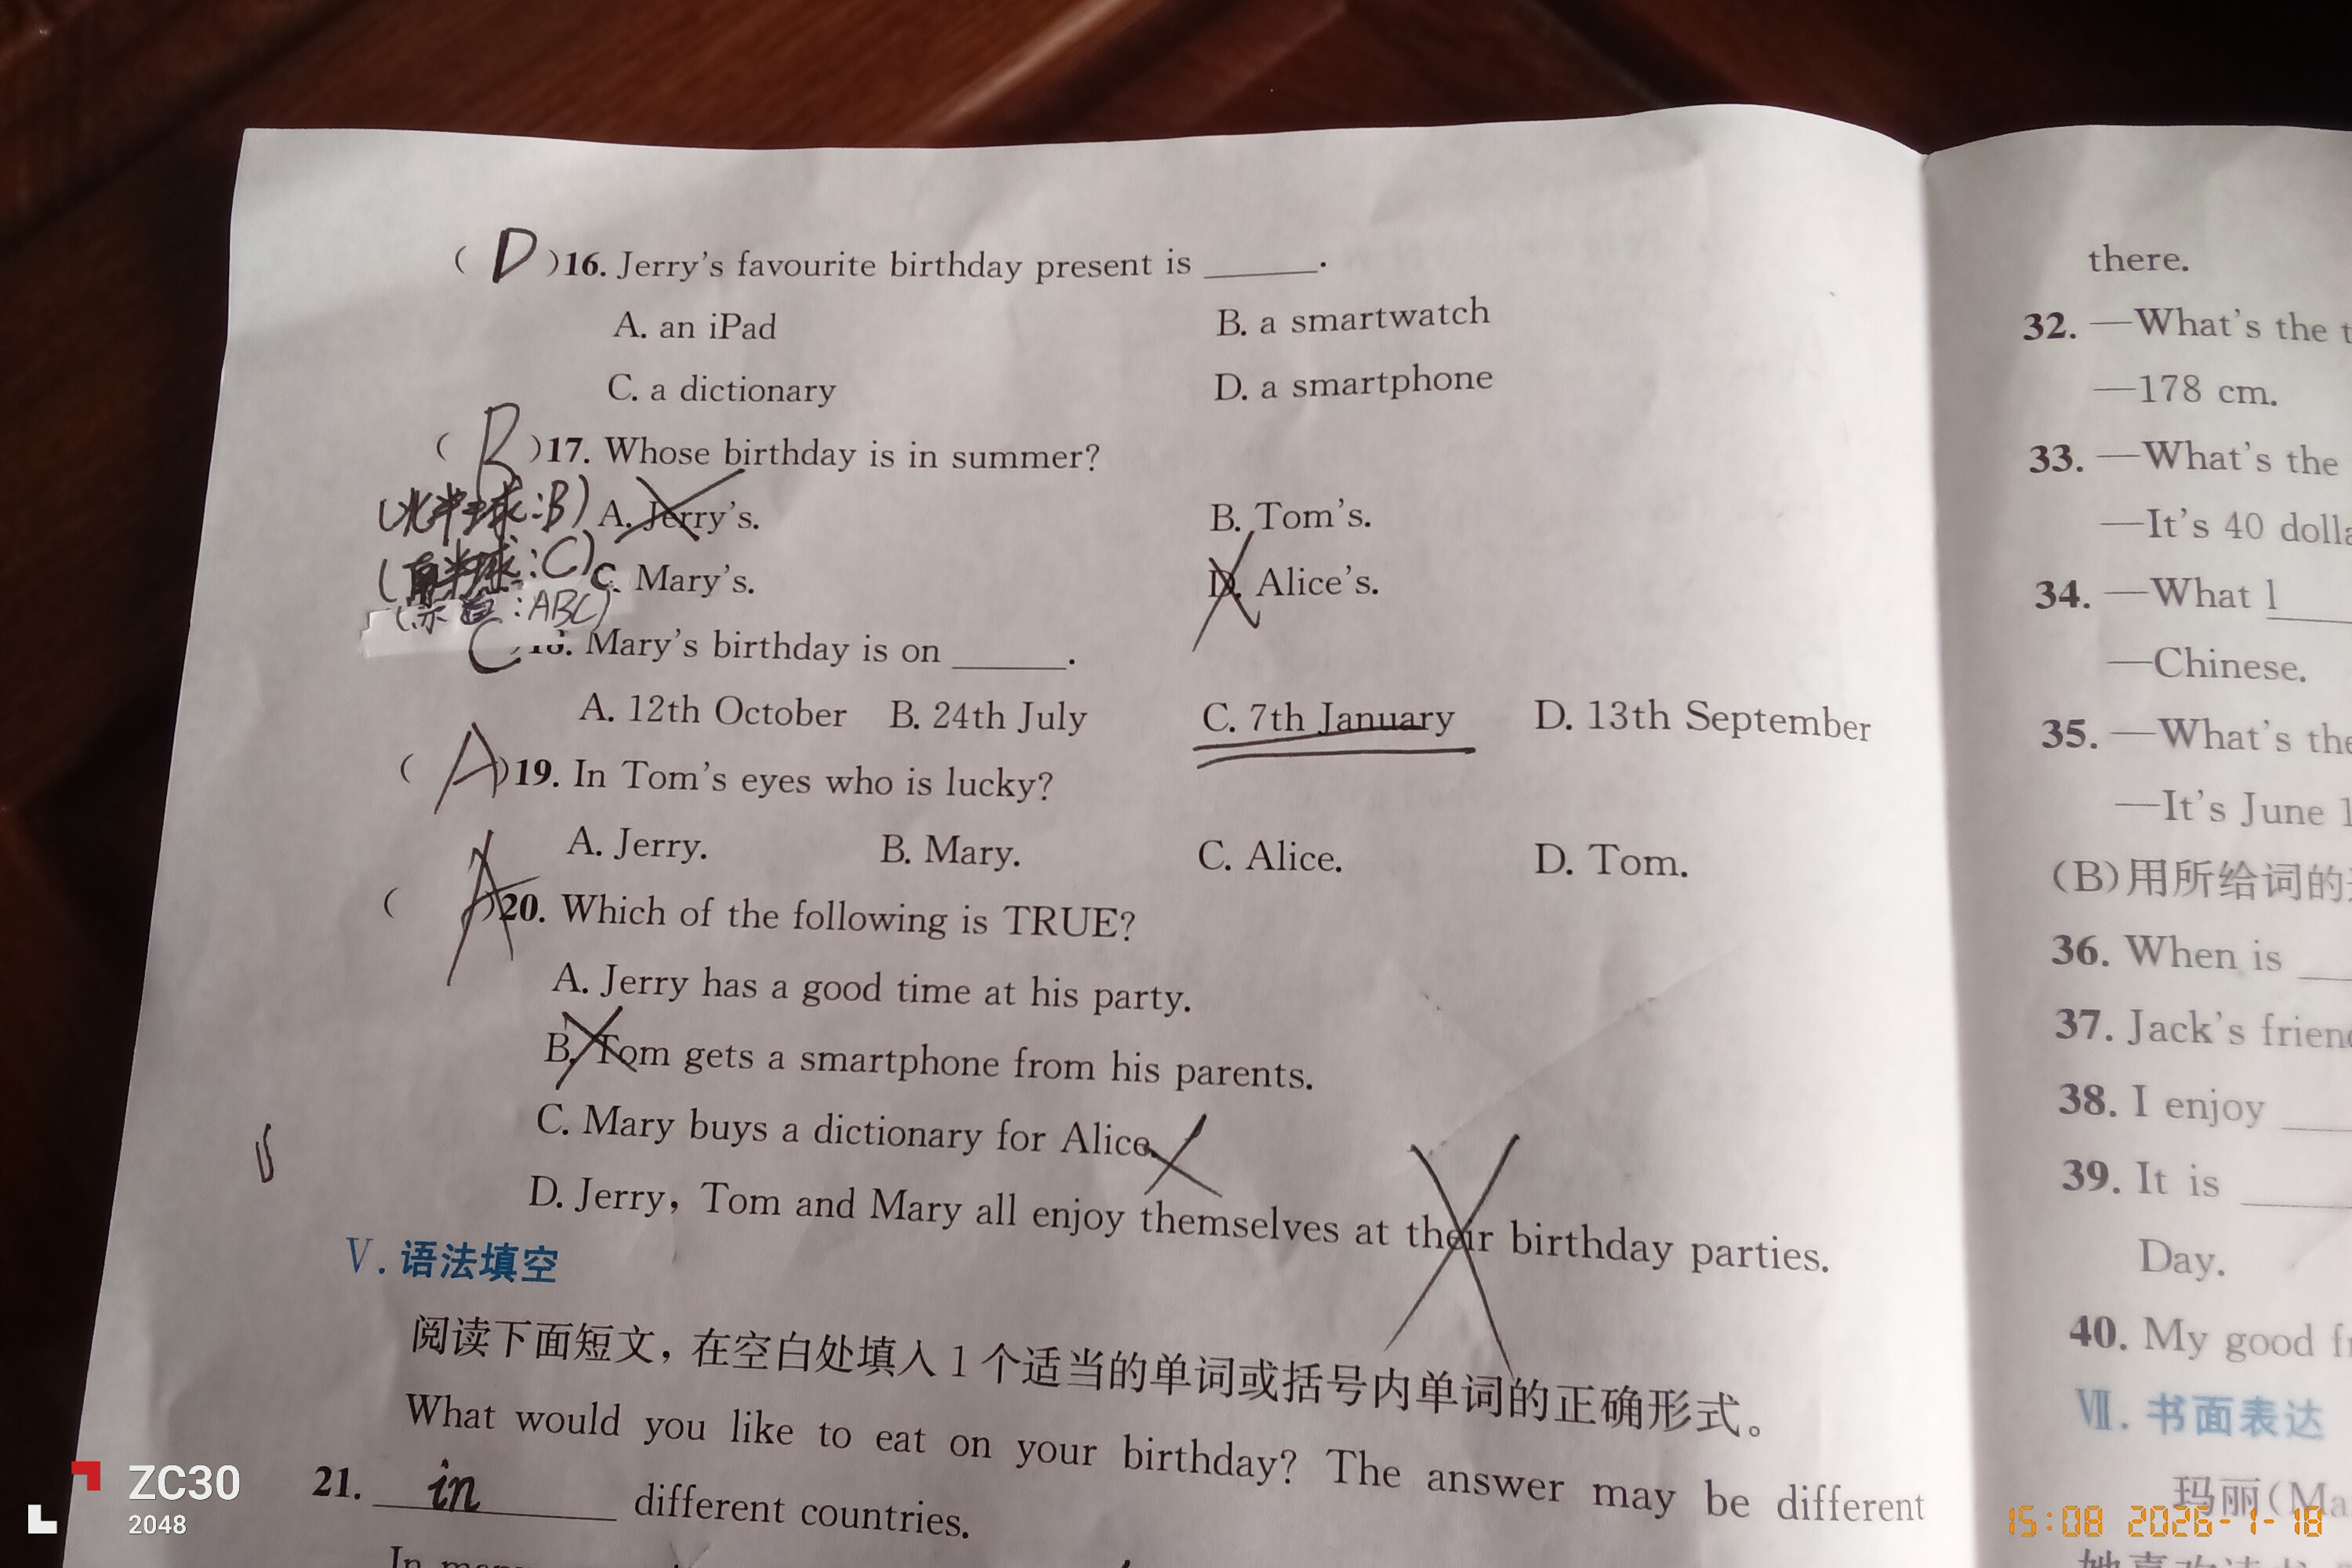 ( D )16. Jerry's favourite birthday present is ______.
A. an iPad B. a smartwatch
C. a dictionary D. a smartphone
( B )17. Whose birthday is in summer?
(北半球:B) A. Jerry's. B. Tom's.
(南半球:C) C. Mary's. D. Alice's.
(赤道:ABC)
C )18. Mary's birthday is on ______.
A. 12th October B. 24th July C. 7th January D. 13th September
( A )19. In Tom's eyes who is lucky?
A. Jerry. B. Mary. C. Alice. D. Tom.
( A )20. Which of the following is TRUE?
A. Jerry has a good time at his party.
B. Tom gets a smartphone from his parents.
C. Mary buys a dictionary for Alice.
D. Jerry, Tom and Mary all enjoy themselves at their birthday parties.
Ⅴ. 语法填空
阅读下面短文，在空白处填入1个适当的单词或括号内单词的正确形式。
What would you like to eat on your birthday? The answer may be different
21. in different countries.
In many
there.
32. —What's the
—178 cm.
33. —What's the
—It's 40
34. —What l
—Chinese.
35. —What's the
—It's June
(B)用所给词的
36. When is
37. Jack's
38. I enjoy
39. It is
Day.
40. My good
Ⅶ. 书面表达
玛丽(Ma
ZC30
2048
15:08 2026-1-18